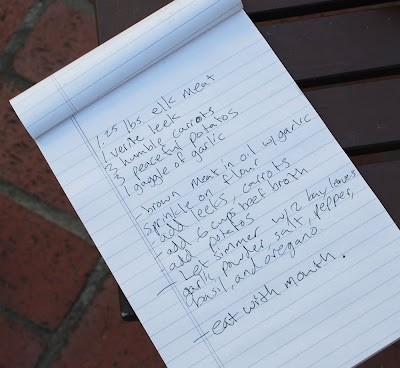 1.25 lbs. elk meat
1 verite leek
3 humble carrots
3 peaceful potatos
1 gaggle of garlic
- brown meat in oil w/ garlic
sprinkle on flour
- add leeks, carrots
- add 6 cups beef broth
add potatos
- Let simmer w/ 2 bay leaves
garlic powder, salt, pepper,
basil, and oregano.
- eat with mouth.